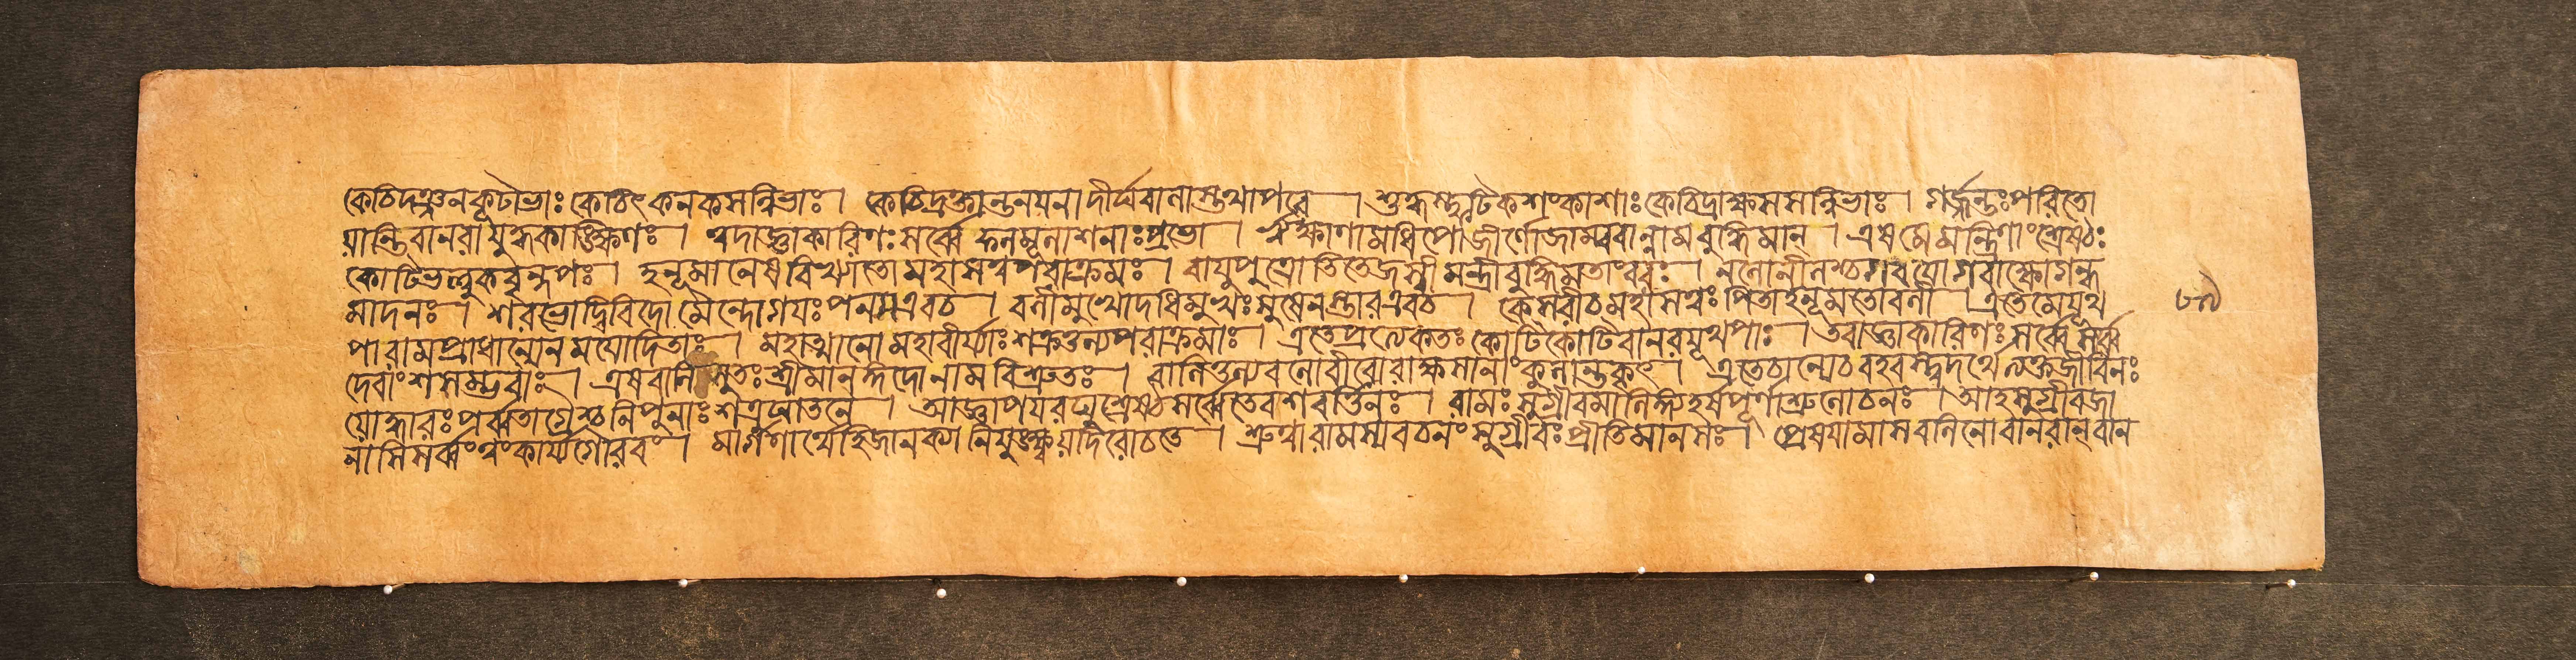 কেচিদঞ্জনকূটাভাঃ কেচিৎ কনকসন্নিভাঃ। কেচিদ্ৰক্তান্তনয়না দীর্ঘবালাস্তথাপরে । শুদ্ধস্ফটিকশংকাশাঃ কেচিদ্ৰাক্ষসসন্নিভাঃ। গর্জ্জন্তঃ পরিতো
যান্তি বানরা যুদ্ধকাঙ্ক্ষিণঃ। ত্বদাজ্ঞাকারিণঃ সর্ব্বে ফলমূলাশনাঃ প্রভো । ঋক্ষাণামধিপো জীর্ণো জাম্ববান্নাম বুদ্ধিমান্ । এষ মে মন্ত্রিণাং শ্রেষ্ঠঃ
কোটিভল্লুকবৃন্দপঃ। হনূমানেষ বিখ্যাতো মহাসত্বপরাক্রমঃ। বায়ুপুত্রোতিতেজস্বী মন্ত্রী বুদ্ধিমতাংবরঃ। নলো নীলশ্চ গবয়ো গবাক্ষো গন্ধ
মাদনঃ । শরভো দ্বিবিদো মৈন্দো গয়ঃ পনস এবচ । বলীমুখো দধিমুখঃ সুষেনস্তার এবচ । কেসরী চ মহাসত্বঃ পিতা হনূমতো বলী । এতে মে যূথ
পা রাম প্রাধান্যেন ময়োদিতাঃ। মহাত্মানো মহাবীর্য্যাঃ শক্রতুল্যপরাক্রমাঃ। এতে প্রত্যেকতঃ কোটিকোটিবানরযূথপাঃ । তবাজ্ঞাকারিণঃ সর্ব্বে সর্ব্বে
দেবাংশসম্ভবাঃ। এষ বালিসুতঃ শ্রীমানঙ্গদো নাম বিশ্রুতঃ । বালিতুল্যবলো বীরো রাক্ষসানাং কুলান্তকৃৎ। এতে চান্যে চ বহবস্ত্বদর্থে ত্যক্তজীবিনঃ
যোদ্ধারঃ পর্ব্বতাগ্রৈশ্চ নিপুনাঃ শত্রুঘাতনে । আজ্ঞাপয় রঘুশ্রেষ্ঠ সর্ব্বে তে বশবর্ত্তিনঃ। রামঃ সুগ্রীবমালিঙ্গ্য হর্ষপূর্ণাশ্রুলোচনঃ। আহ সুগ্রীব জা
নাসি সর্ব্বং ত্বং কার্য্যগৌরবং। মার্গণার্থে হি জানক্যা নিযুঙ্ক্ষ্ব যদি রোচতে । শ্রুত্বা রামস্য বচনং সুগ্রীবঃ প্রীতিমানসঃ। প্রেষয়ামাস বলিনো বানরান্ বান
৮৭